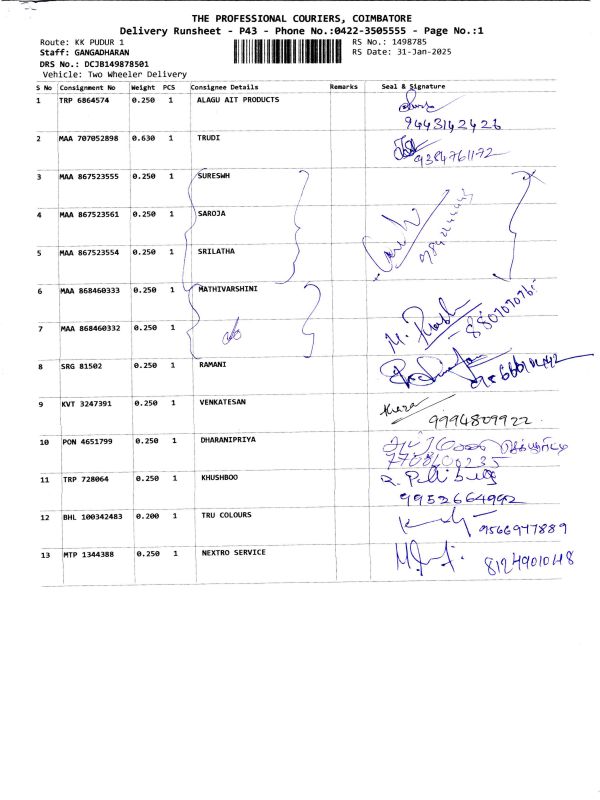 THE PROFESSIONAL COURIERS, COIMBATORE
Delivery Runsheet - P43 - Phone No.:0422-3505555 - Page No.:1
Route: KK PUDUR 1 RS No.: 1498785
Staff: GANGADHARAN RS Date: 31-Jan-2025
DRS No.: DCJB149878501
Vehicle: Two Wheeler Delivery
S No Consignment No Weight PCS Consignee Details Remarks Seal & Signature
1 TRP 6864574 0.250 1 ALAGU AIT PRODUCTS
9443142426
2 MAA 707052898 0.630 1 TRUDI
9384761172
3 MAA 867523555 0.250 1 SURESWH
4 MAA 867523561 0.250 1 SAROJA
5 MAA 867523554 0.250 1 SRILATHA
6 MAA 868460333 0.250 1 MATHIVARSHINI
7 MAA 868460332 0.250 1
8 SRG 81502 0.250 1 RAMANI
9 KVT 3247391 0.250 1 VENKATESAN
9994809922
10 PON 4651799 0.250 1 DHARANIPRIYA
7708600235
11 TRP 728064 0.250 1 KHUSHBOO
9952664992
12 BHL 100342483 0.200 1 TRU COLOURS
9566977889
13 MTP 1344388 0.250 1 NEXTRO SERVICE
8124901048